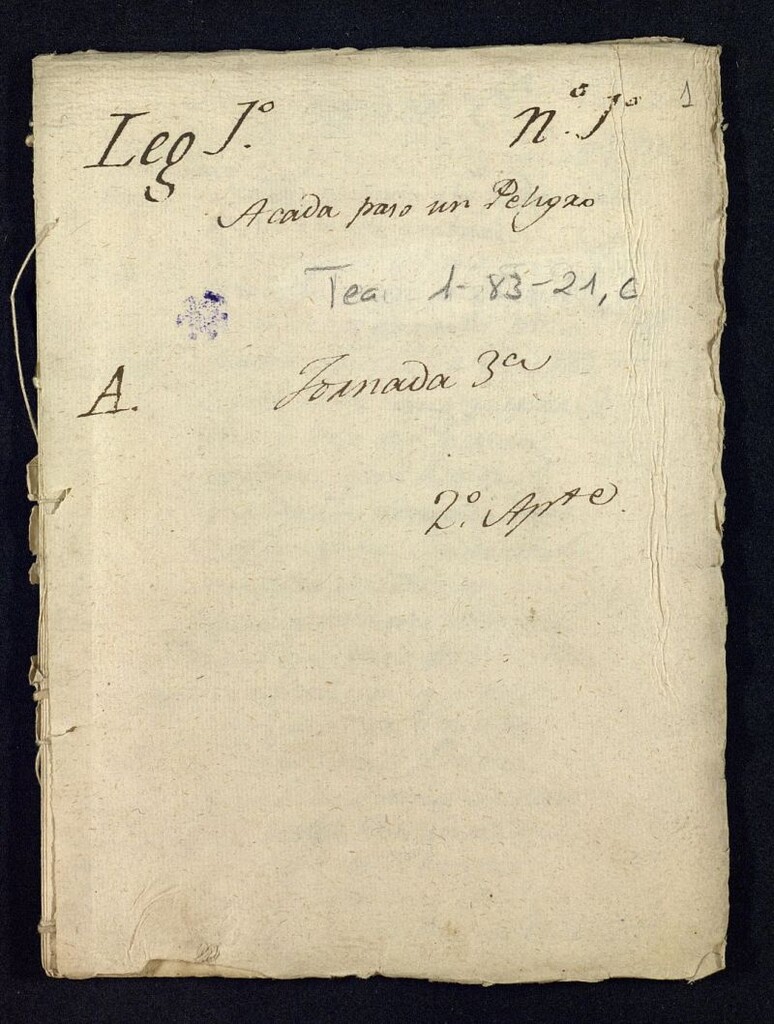 1
Leg 1.º n.º 1.º
A cada paso un Peligro
Tea 1-83-21, C
A. Jornada 3ª
2.º Apte.